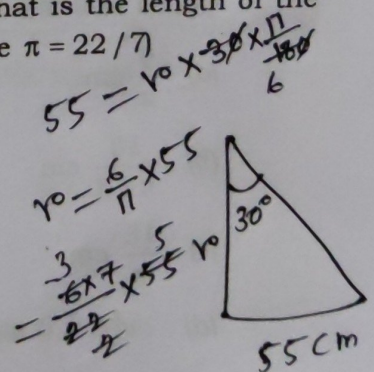 hat is the length of the
e π = 22 / 7)
55 = r × 30 × π/180
6
r = 6/π × 55
30°
3 5
= 6×7/22 × 55 r
2
55 cm